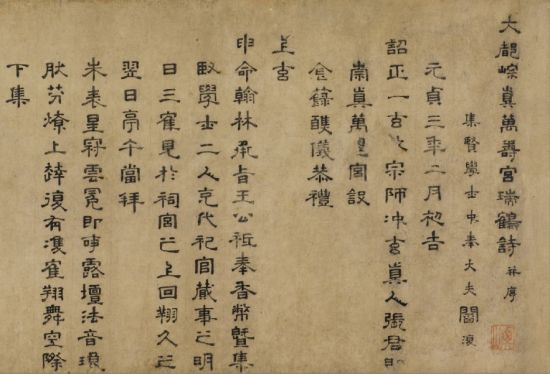 大都崇真萬壽宮瑞鶴詩并序
集賢學士中奉大夫閻復
元貞三年二月初吉
詔正一玄教宗師冲玄真人張君即
崇真萬壽宮設
金籙醮儀恭禮
上玄
申命翰林承旨王公祗奉香幣暨集
賢學士二人充代祀官蕆事之明
日三寉見於祠宮之上回翔久之
翌日亭午當拜
朱表星冠雲冕即事露壇法音
肸芬燎上達復有雙寉翔舞空際
下集